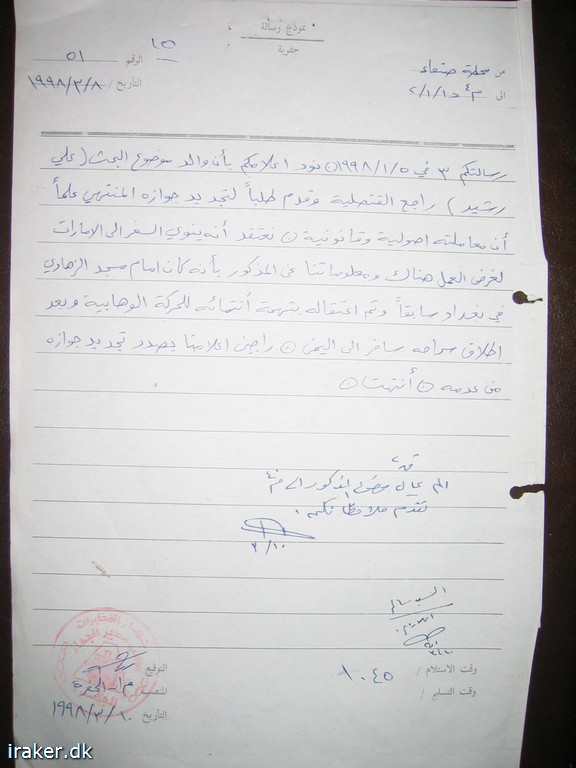 نموذج رسالة
جفرية
١٥
الرقم / ٥١
التاريخ / ١٩٩٨/٣/٨
من محطة صنعاء
الى م٤ د١/١/٢
رسالتكم ٣ في ١٩٩٨/١/٥ ٥ نود اعلامكم بأن والد موضوع البحث (علي
رشيد) راجع القنصلية وقدم طلباً لتجديد جوازه المنتهي علماً
أن معاملته اصولية وقانونية ٥ نعتقد أنه ينوي السفر الى الامارات
لغرض العمل هناك ومعلوماتنا عن المذكور بأنه كان امام مسجد الزهاوي
في بغداد سابقاً وتم اعتقاله بتهمة أنتمائه للحركة الوهابية وبعد
اطلاق سراحه سافر الى اليمن ٥ راجين اعلامنا بصدد تجديد جوازه
من عدمه ٥ أنتهت ٥
المذكور الى م٤
٣/١٠
السيد
وقت الاستلام / ١٠٤٥
وقت التسليم /
التوقيع
التاريخ ١٩٩٨/٣/١٠
المخابرات
iraker.dk